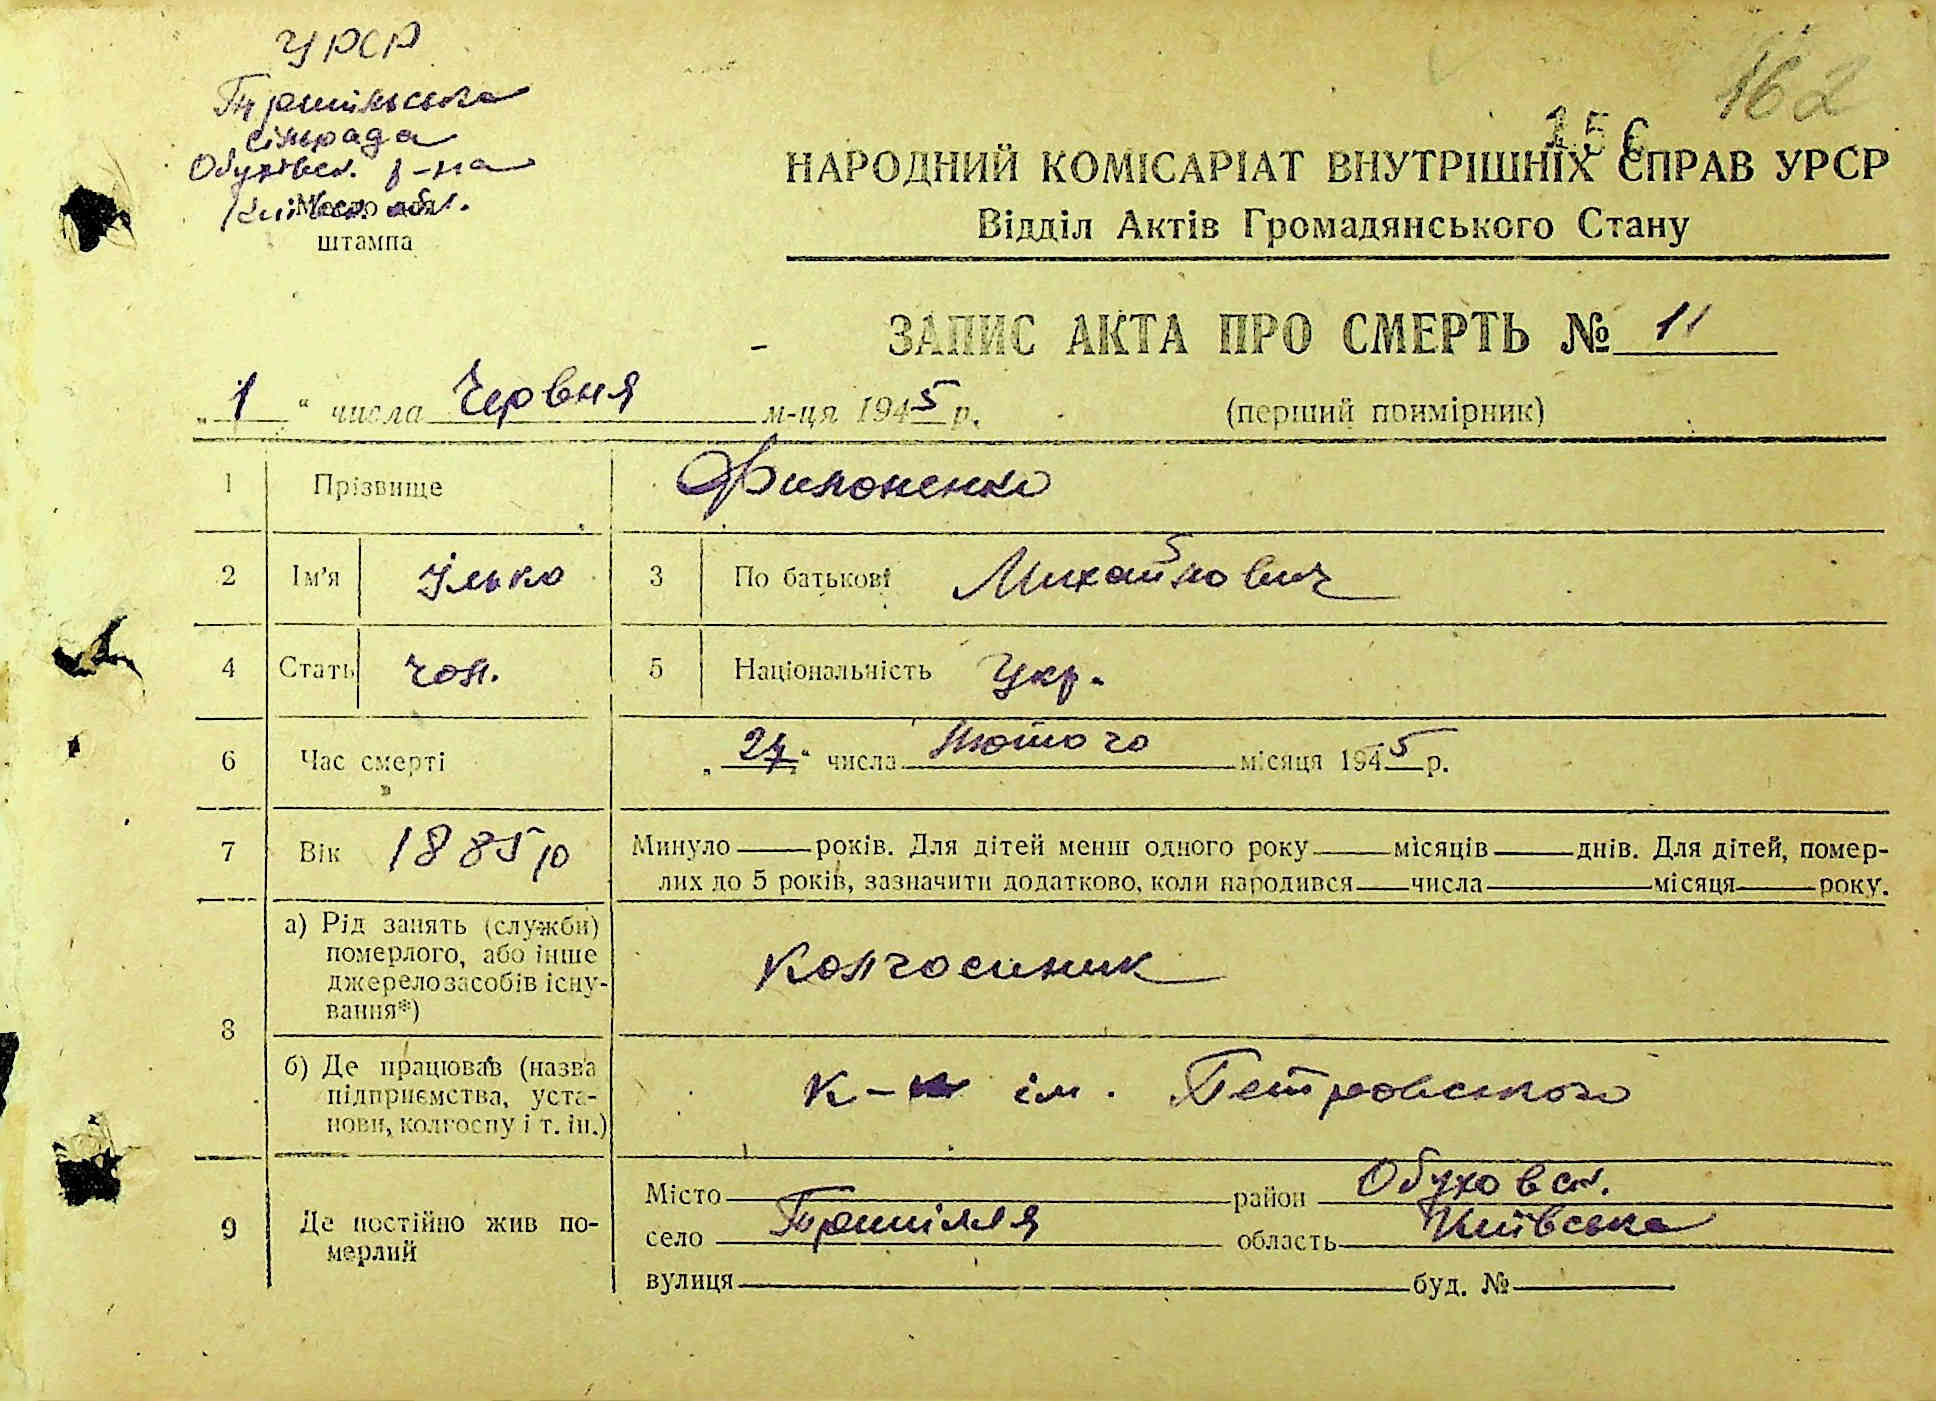 УРСР
Трипільська
сільрада
Обухівсь. р-на
Київськ. обл.
Місце
штампа
162
156
НАРОДНИЙ КОМІСАРІАТ ВНУТРІШНІХ СПРАВ УРСР
Відділ Актів Громадянського Стану
ЗАПИС АКТА ПРО СМЕРТЬ № 11
„1“ числа Червня м-ця 1945 р. (перший примірник)
1 Прізвище Филоненко
2 Ім'я Ілько 3 По батькові Михайлович
4 Стать чол. 5 Національність Укр.
6 Час смерті „24“ числа Лютого місяця 1945 р.
7 Вік 1885 ю Минуло років. Для дітей менш одного року місяців днів. Для дітей, помер-
лих до 5 років, зазначити додатково, коли народився числа місяця року.
8 а) Рід занять (служби)
померлого, або інше
джерело засобів існу-
вання*)
Колгоспник
б) Де працював (назва
підприємства, уста-
нови, колгоспу і т. ін.)
К-п ім. Петровського
9 Де постійно жив по-
мерлий
Місто район Обуховсь.
село Трипілля область Київська
вулиця буд. №